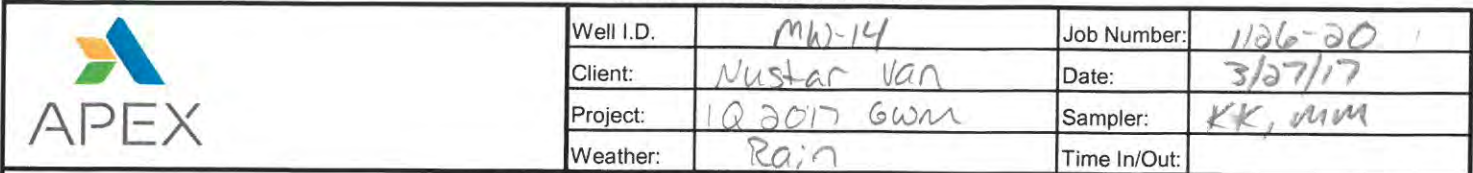 Well I.D. MW-14 Job Number: 1126-20
Client: Nustar Van Date: 3/27/17
Project: 1Q 2017 GWM Sampler: KK, MM
Weather: Rain Time In/Out:
APEX